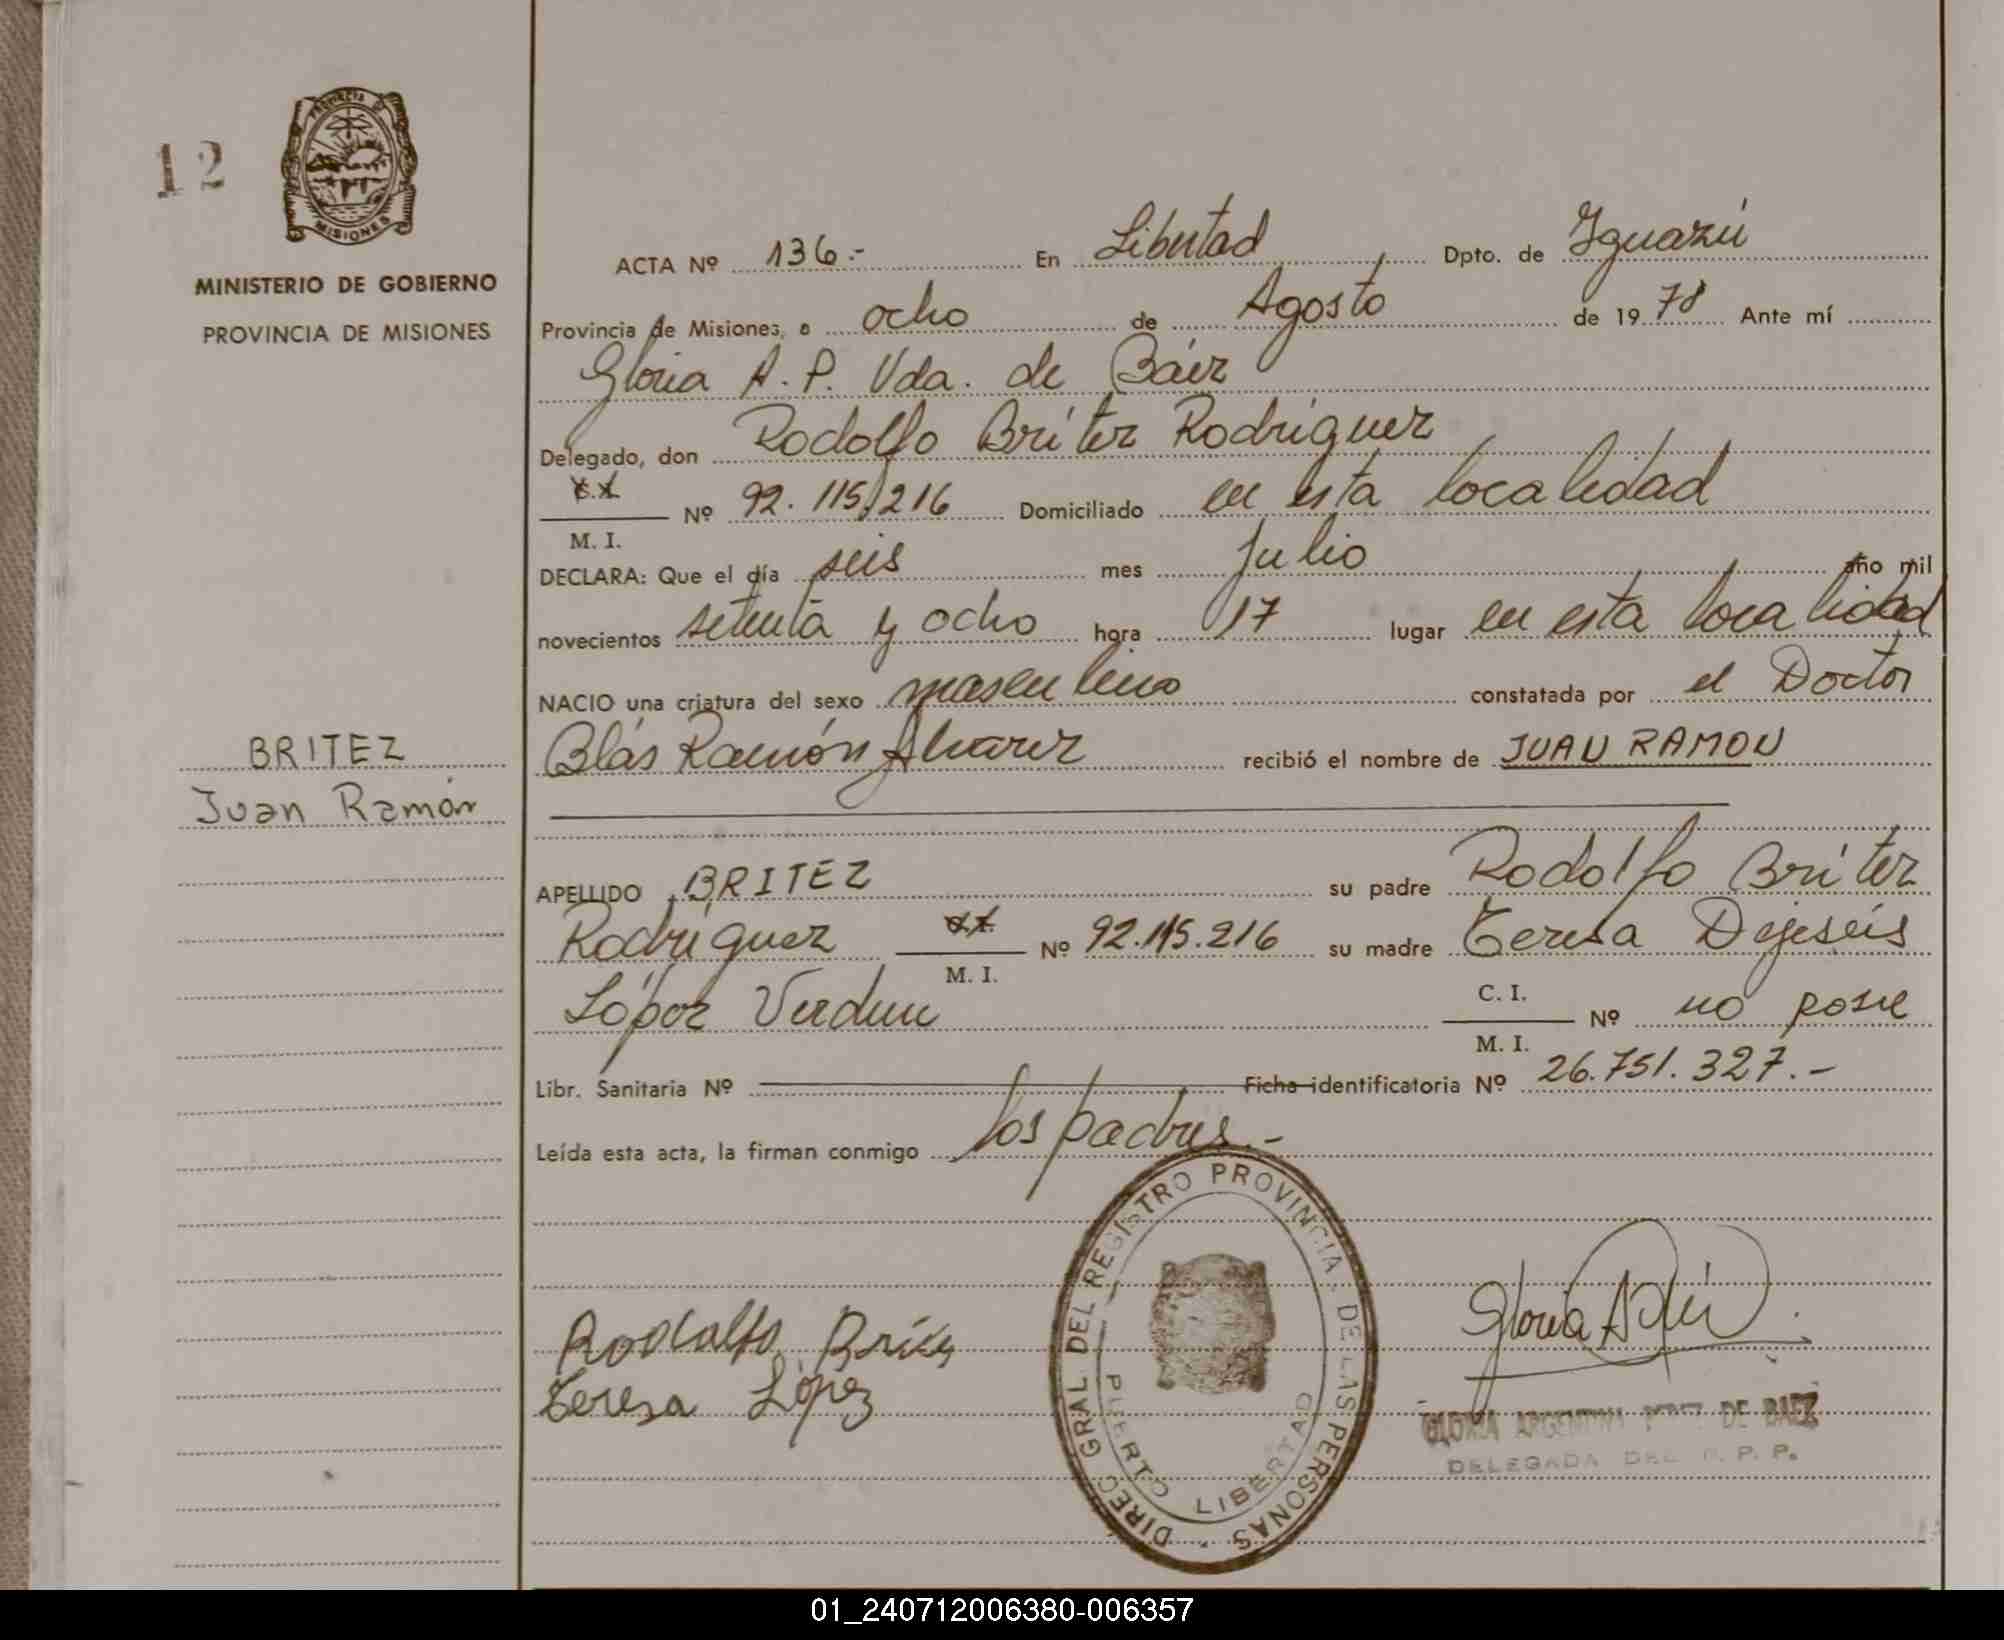 12
PROVINCIA DE
MISIONES
MINISTERIO DE GOBIERNO
PROVINCIA DE MISIONES
BRITEZ
Juan Ramón
ACTA Nº 136.- En Libertad Dpto. de Iguazú
Provincia de Misiones, a ocho de Agosto de 1978 Ante mí
Gloria A. P. Vda. de Báez
Delegado, don Rodolfo Brítez Rodríguez
M. I. Nº 92.115.216 Domiciliado en esta localidad
DECLARA: Que el día seis mes Julio año mil
novecientos setenta y ocho hora 17 lugar en esta localidad
NACIO una criatura del sexo masculino constatada por el Doctor
Blás Ramón Alvarez recibió el nombre de JUAN RAMON
APELLIDO BRITEZ su padre Rodolfo Brítez
Rodríguez M. I. Nº 92.115.216 su madre Teresa Dejesús
López Verdun C. I. M. I. Nº no posee
Libr. Sanitaria Nº Ficha identificatoria Nº 26.751.327.-
Leída esta acta, la firman conmigo los padres.-
Rodolfo Britez
Teresa López
DIREC. GRAL. DEL REGISTRO PROVINCIAL DE LAS PERSONAS
PUERTO LIBERTAD
GLORIA ARGENTINA PEREZ DE BAEZ
DELEGADA DEL R. P. P.
01_240712006380-006357